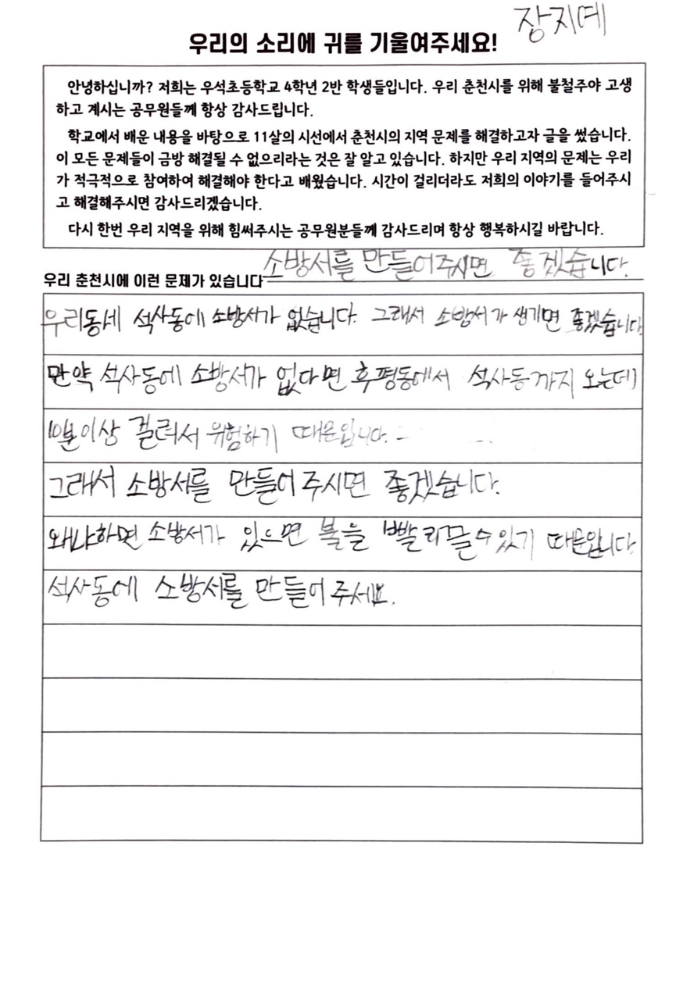 장지예
우리의 소리에 귀를 기울여주세요!
안녕하십니까? 저희는 우석초등학교 4학년 2반 학생들입니다. 우리 춘천시를 위해 불철주야 고생
하고 계시는 공무원들께 항상 감사드립니다.
학교에서 배운 내용을 바탕으로 11살의 시선에서 춘천시의 지역 문제를 해결하고자 글을 썼습니다.
이 모든 문제들이 금방 해결될 수 없으리라는 것은 잘 알고 있습니다. 하지만 우리 지역의 문제는 우리
가 적극적으로 참여하여 해결해야 한다고 배웠습니다. 시간이 걸리더라도 저희의 이야기를 들어주시
고 해결해주시면 감사드리겠습니다.
다시 한번 우리 지역을 위해 힘써주시는 공무원분들께 감사드리며 항상 행복하시길 바랍니다.
우리 춘천시에 이런 문제가 있습니다 소방서를 만들어주시면 좋겠습니다.
우리동세 석사동에 소방서가 없습니다. 그래서 소방서가 생기면 좋겠습니다
만약 석사동에 소방서가 없다면 후평동에서 석사동까지 오는데
10분이상 걸려서 위험하기 때문입니다.
그래서 소방서를 만들어 주시면 좋겠습니다.
왜냐하면 소방서가 있으면 불을 빨리끌수있기 때문입니다.
석사동에 소방서를 만들어 주세요.